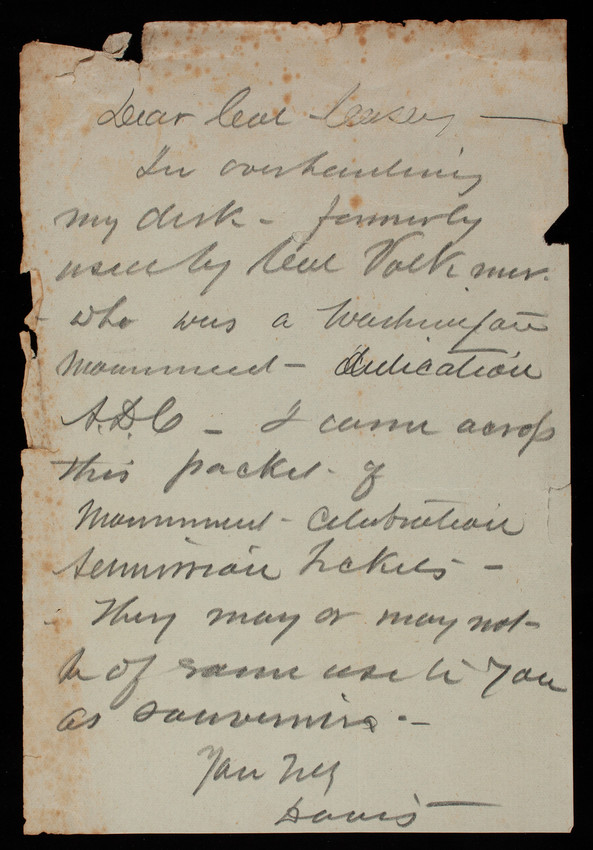 Dear Col Casey —
In overhauling
my desk – formerly
used by Col Volkmar.
who was a Washington
Monument – dedication
A.D.C – I came across
this packet of
Monument – celebration
admission tickets –
They may or may not
be of some use to you
as souvenirs. –
Davis